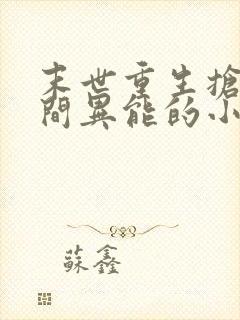 末世重生搶
間異能的小
蘇鑫